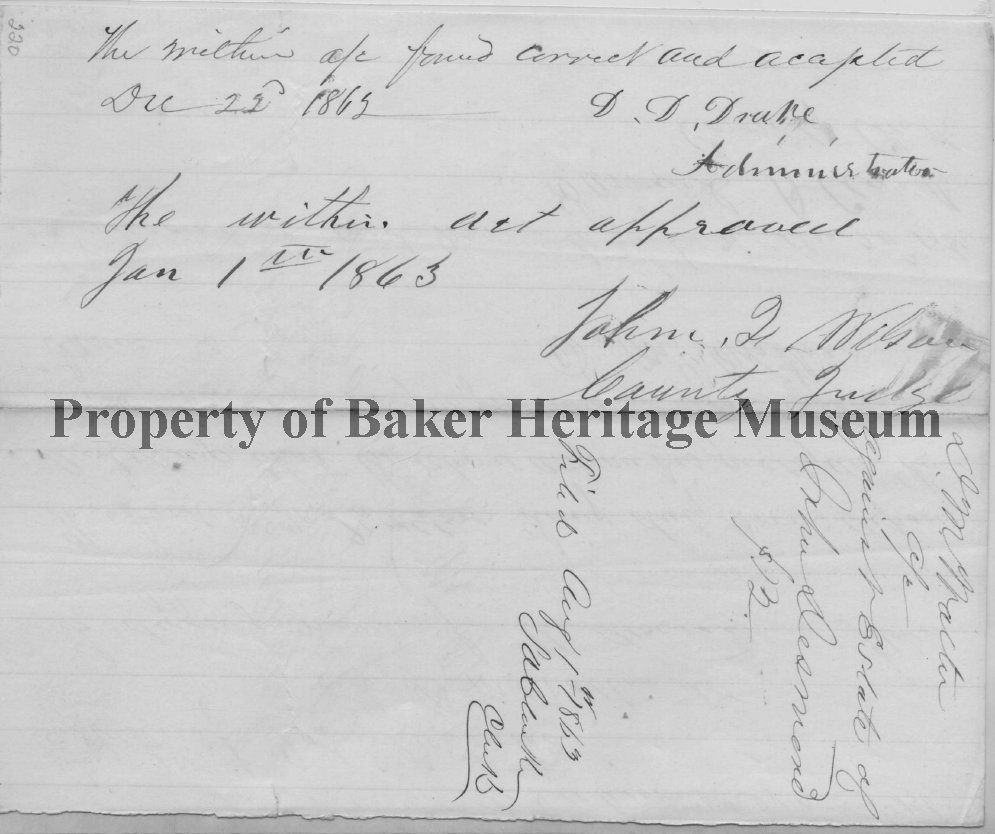 220
The within a/c found correct and acapted
Dec 22d 1862
D. D. Drake
Administrator
The within act approved
Jan 1th 1863
John Q Wilson
County Judge
Property of Baker Heritage Museum
a/c
against Estate of
John Desmond
$12.
Filed Aug 1st 1863
Clerk